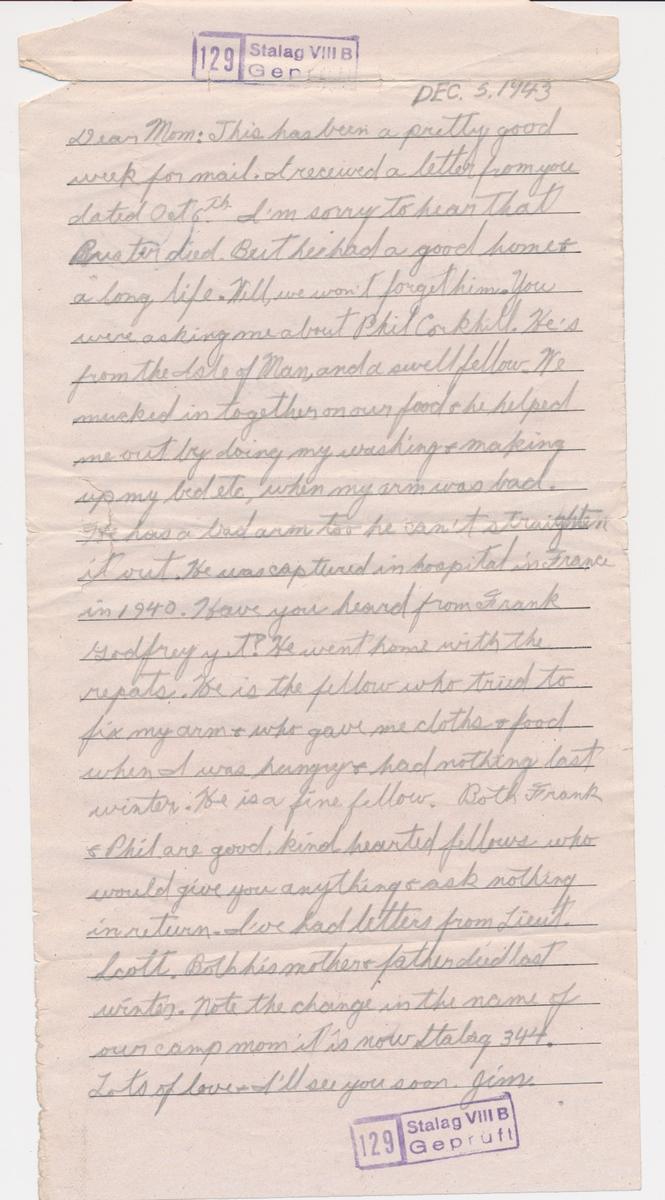 129 Stalag VIII B
Geprüft
DEC. 5, 1943
Dear Mom: This has been a pretty good
week for mail. I received a letter from you
dated Oct 6th. I'm sorry to hear that
Buster died. But he had a good home &
a long life. Well, we won't forget him. You
were asking me about Phil Corkhill. He's
from the Isle of Man, and a swell fellow. We
mucked in together on our food & he helped
me out by doing my washing & making
up my bed etc, when my arm was bad.
He has a bad arm too he can't straighten
it out. He was captured in hospital in France
in 1940. Have you heard from Frank
Godfrey yet? He went home with the
repats. He is the fellow who tried to
fix my arm & who gave me cloths & food
when I was hungry & had nothing last
winter. He is a fine fellow. Both Frank
& Phil are good, kind hearted fellows who
would give you anything & ask nothing
in return. I've had letters from Lieut.
Scott. Both his mother & father died last
winter. Note the change in the name of
our camp mom it is now Stalag 344.
Lots of love & I'll see you soon. Jim.
129 Stalag VIII B
Geprüft